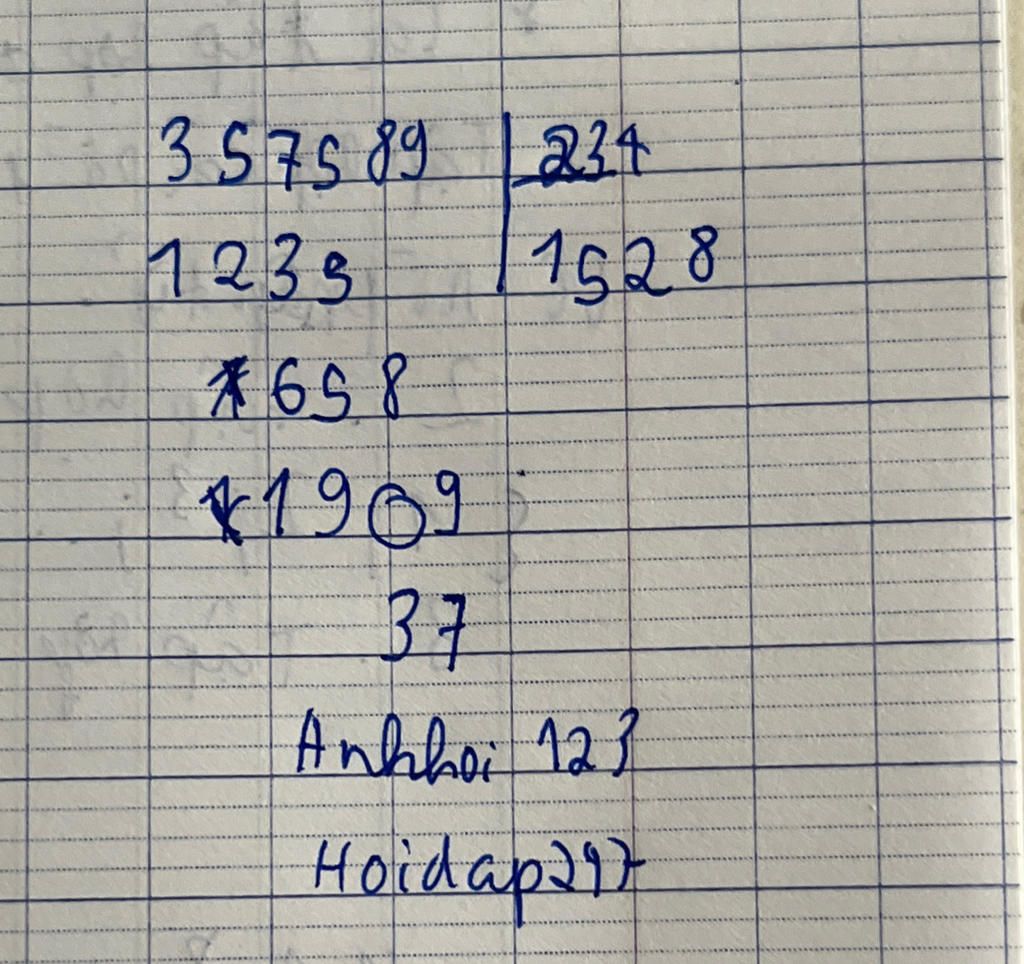 357589 234
1235 1528
658
1909
37
Anhhoi 123
Hoidap247